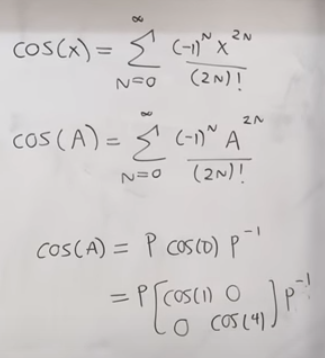 cos(x) = ∞∑N=0 (-1)^N x^2N / (2N)!
cos(A) = ∞∑N=0 (-1)^N A^2N / (2N)!
cos(A) = P cos(D) P^-1
= P [cos(1) 0
0 cos(4)] P^-1